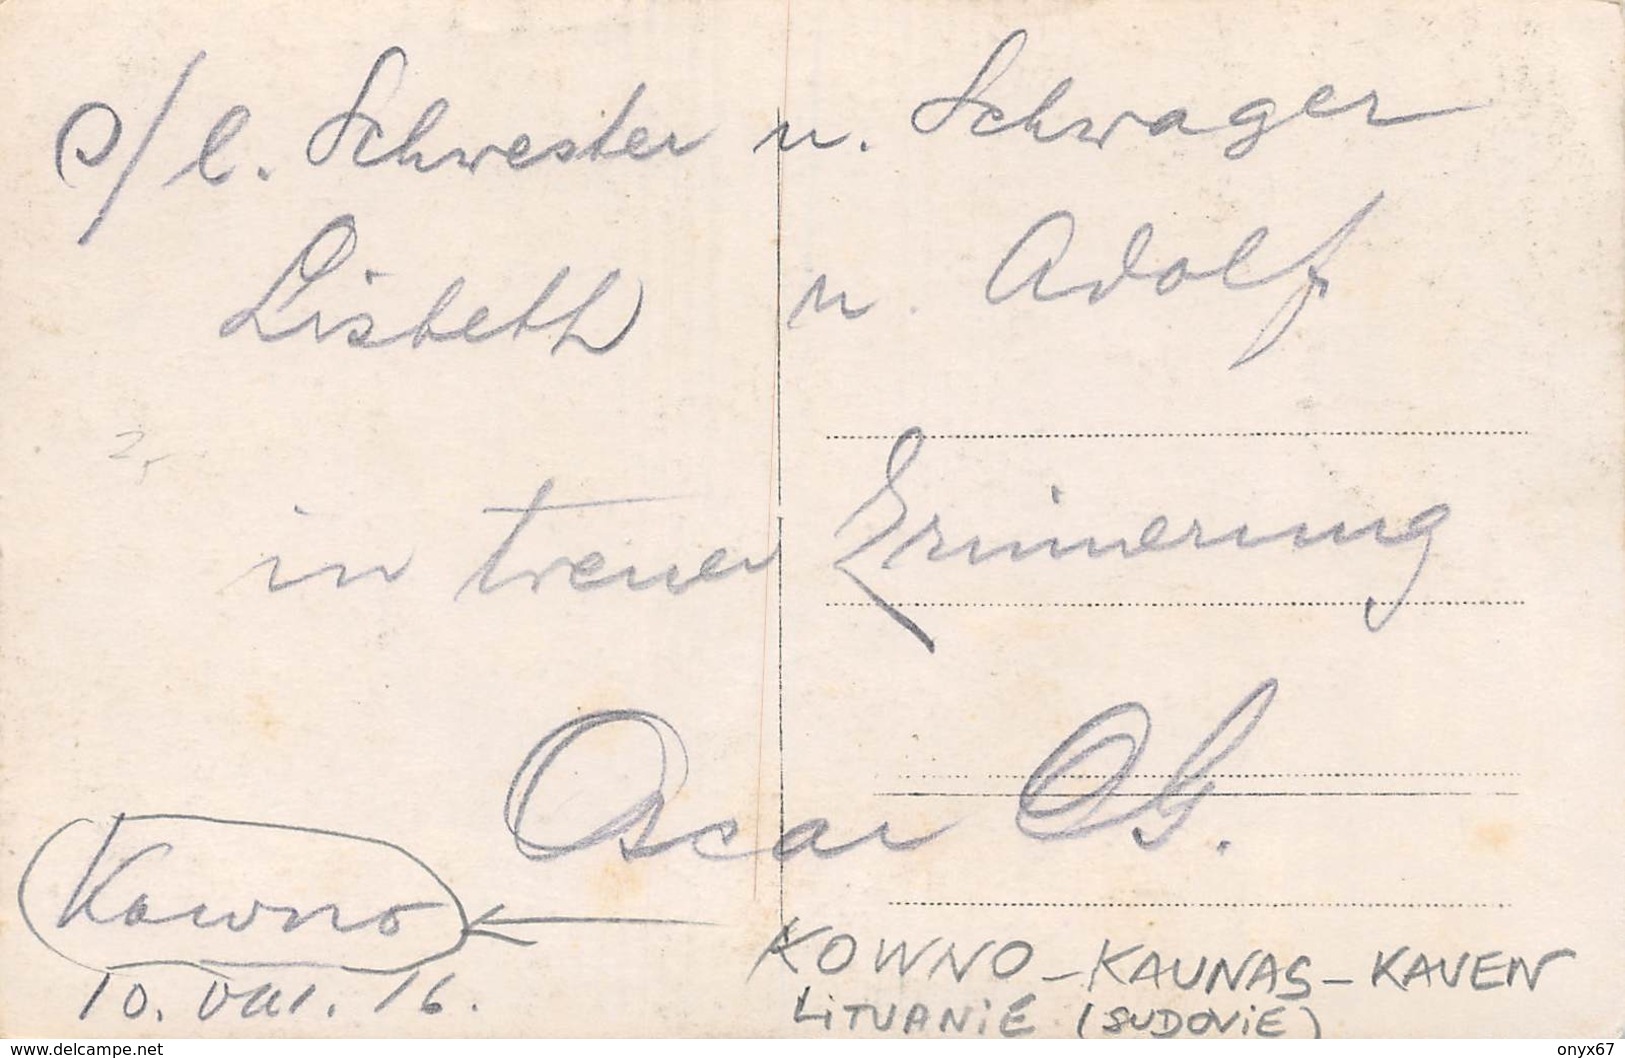 s/l. Schwester u. Schwager
Lisbeth u. Adolf
2,-
in treuer Erinnerung
Oscar
Kowno
10. VIII. 16.
KOWNO - KAUNAS - KAUEN
LITUANIE (SUDOVIE)
www.delcampe.net
onyx67